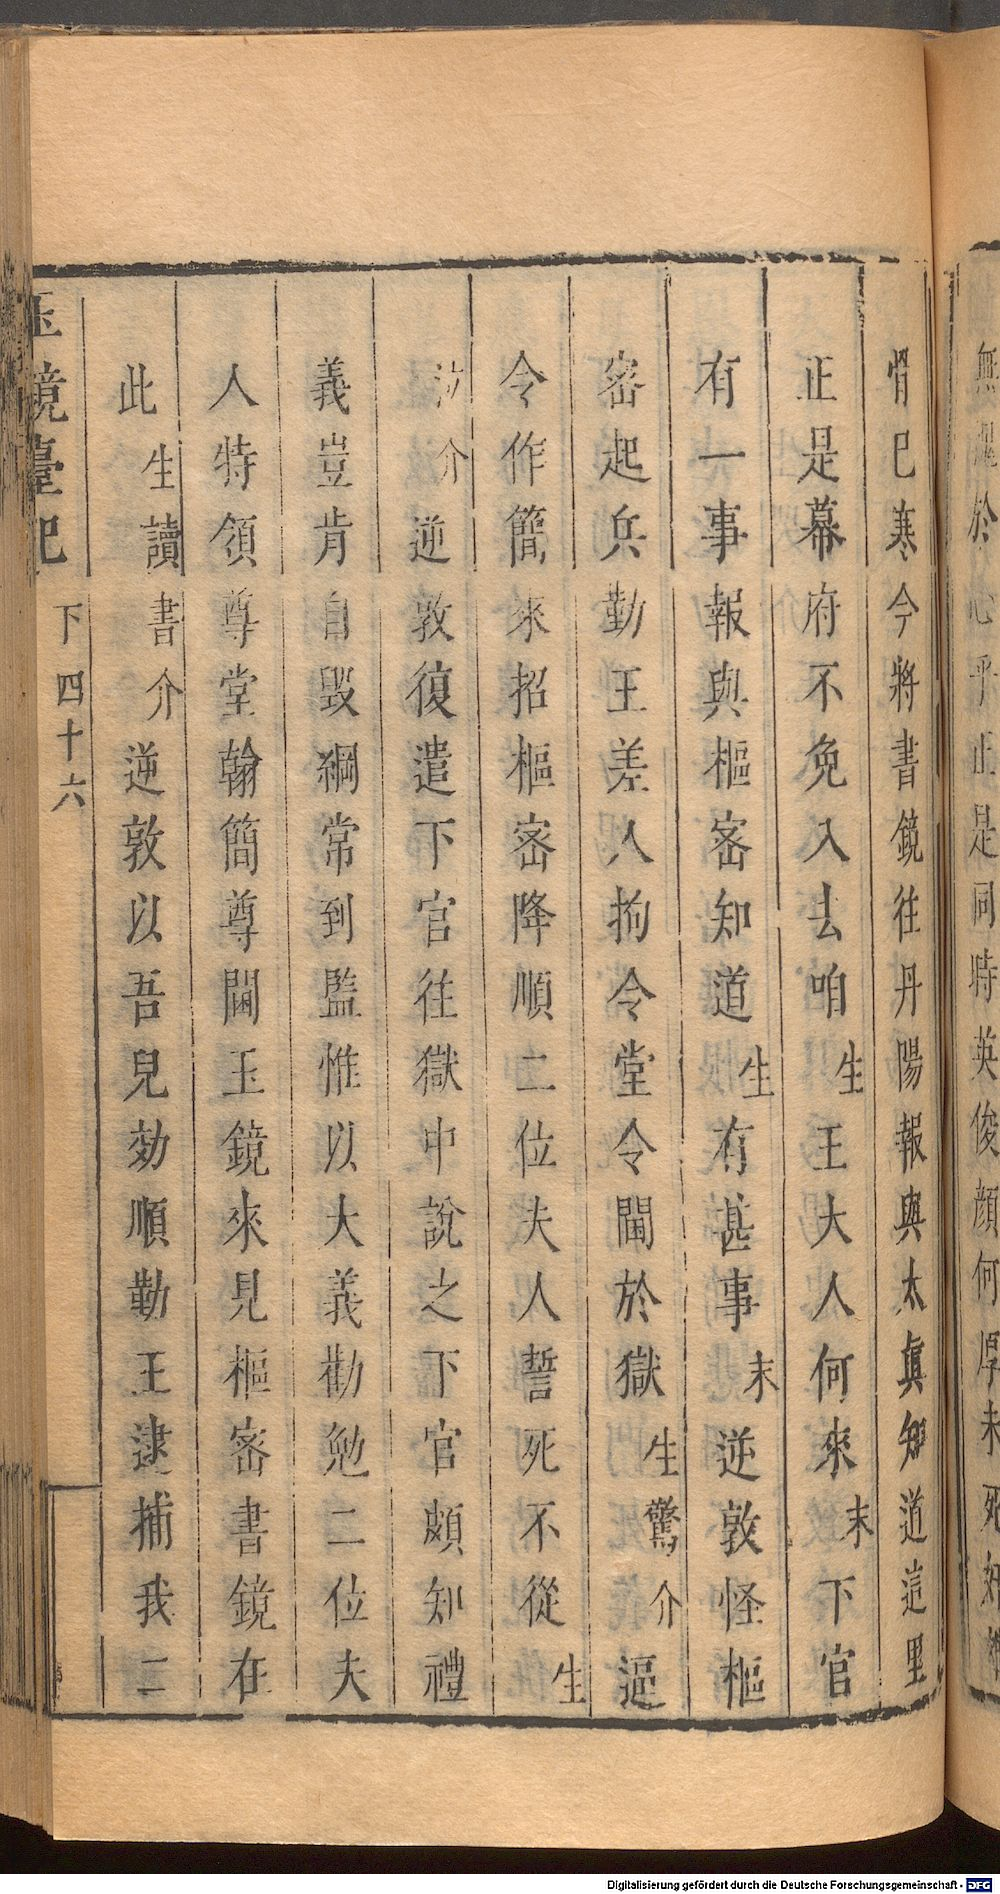 無
於心乎正是同時英俊顔何厚未死
情已寒今將書鏡往丹陽報與太眞知道這里
正是幕府不免入去咱生王大人何來末下官
有一事報與樞密知道生有甚事末逆敦怪樞
密起兵勤王差人拘令堂令閫於獄生驚介逼
令作簡來招樞密降順二位夫人誓死不從生
泣介逆敦復遣下官往獄中說之下官頗知禮
義豈肯自毀綱常到監惟以大義勸勉二位夫
人特領尊堂翰簡尊閫玉鏡來見樞密書鏡在
此生讀書介逆敦以吾兒効順勤王逮捕我二
玉鏡臺記
下四十六
Digitalisierung gefördert durch die Deutsche Forschungsgemeinschaft - DFG